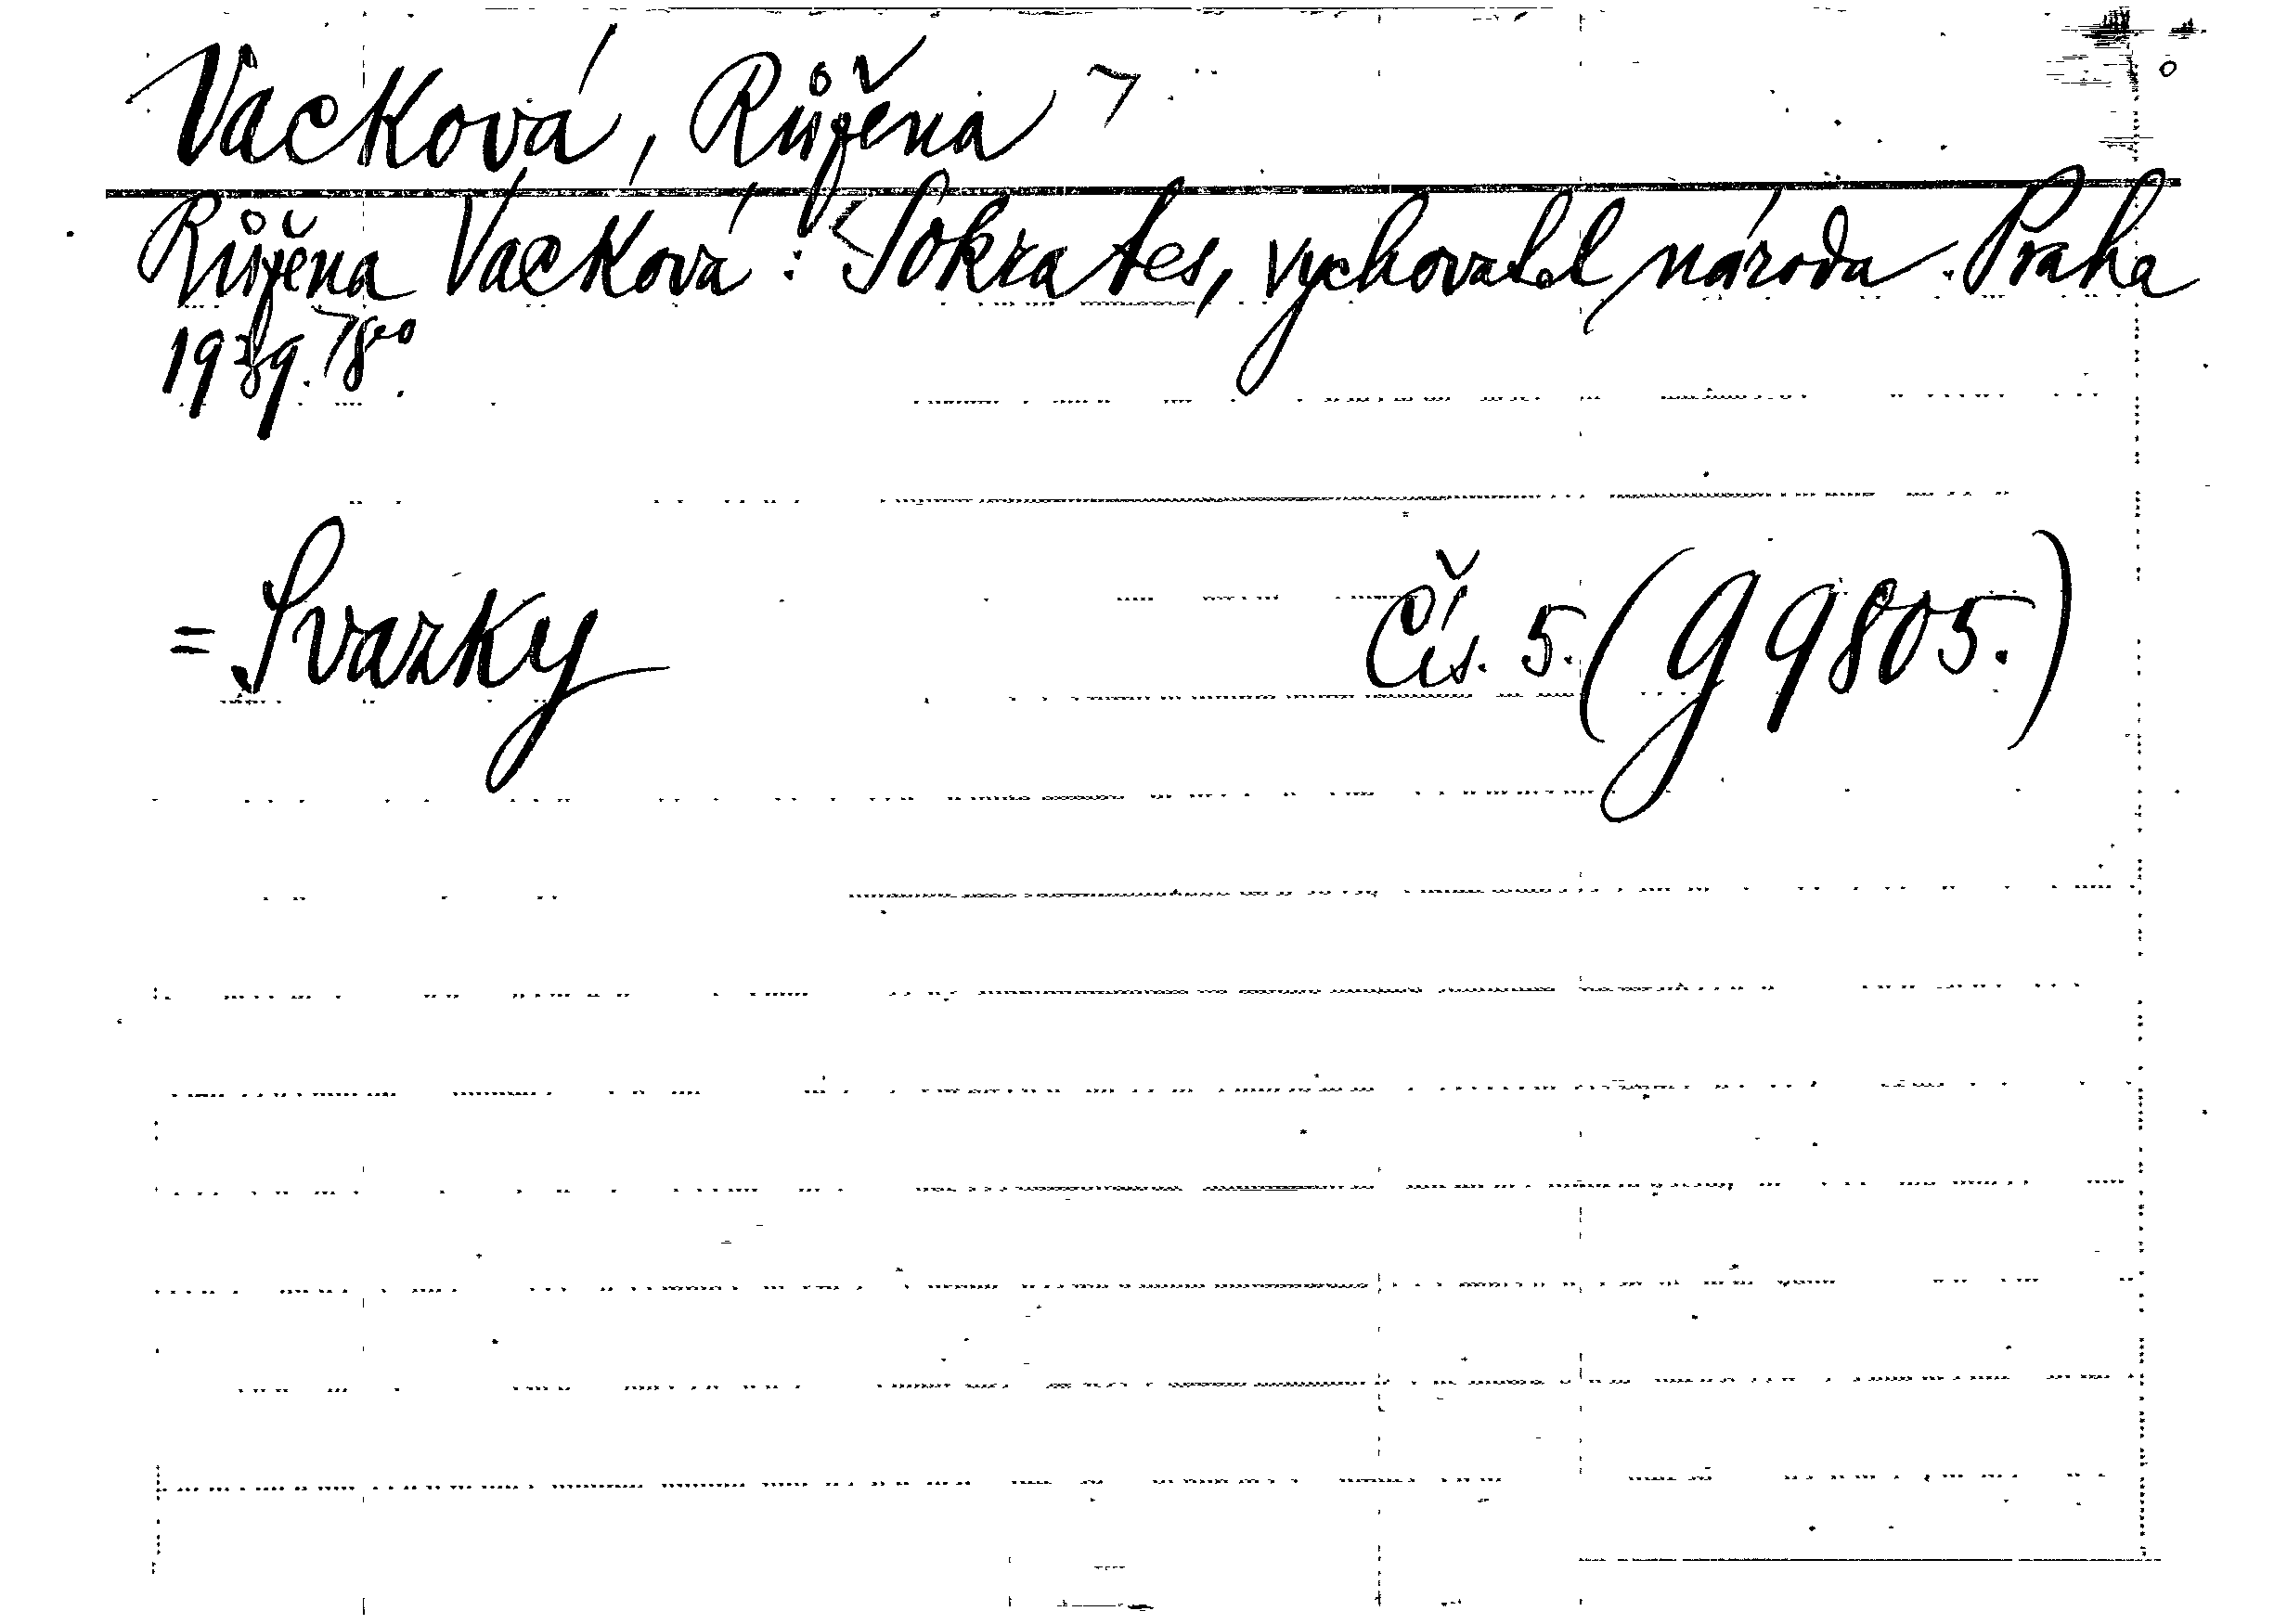 Vacková, Růžena
Růžena Vacková: Sokrates, vychovatel národa. Praha
1939. 8°.
= Svazky Čís. 5. (g 9805.)